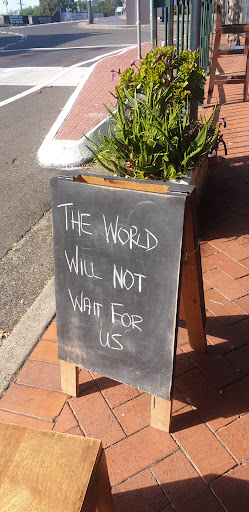 THE WORLD
WILL NOT
WAIT FOR
US